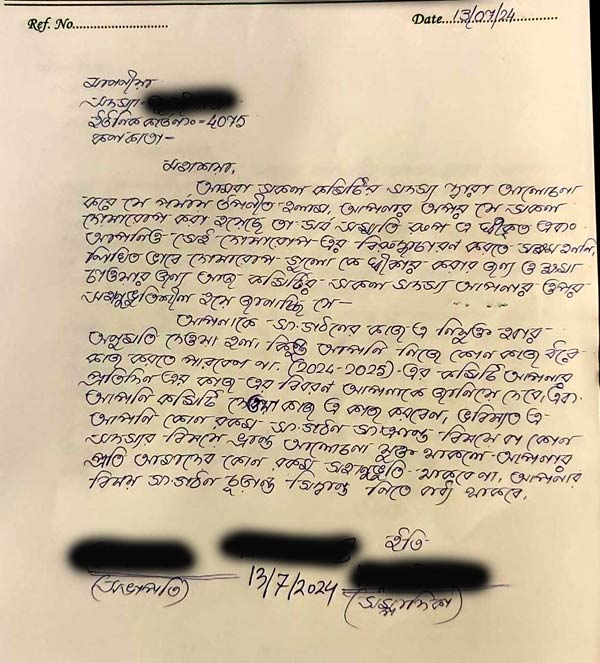 Ref. No.......................... Date....13/07/24....................
মাননীয়া
সদস্যা-
ইউনিক কার্ড নং = 4075
কলকাতা -
মহাশয়া,
আমরা সকল কমিটির সদস্য দ্বারা আলোচনা
করে যে পর্যায় উপনীত হলাম, আপনার ওপর যে সকল
দোষারোপ করা হয়েছে তা সব সম্মতি রূপে এ স্বীকৃত এবং
আপনিও সেই দোষারোপ এর বিরুদ্ধাচারণ করতে সক্ষম হননি,
লিখিত ভাবে দোষারোপ গুলো কে স্বীকার করার জন্য ও ক্ষমা
চাওয়ার জন্য আজ কমিটির সকল সদস্য আপনার ওপর
সহানুভূতিশীল হয়ে জানাচ্ছি যে -
আপনাকে সংগঠনের কাজ এ নিযুক্ত হবার
অনুমতি দেওয়া হল, কিন্তু আপনি নিজে কোন কাজ
কাজ করতে পারবেন না, (2024-2025) এর কমিটি আপনার
প্রতিদিন এর কাজ এর বিবরণ আপনাকে জানিয়ে দেবে, এবং
আপনি কমিটি দেওয়া কাজ এ কাজ করবেন, ভবিষ্যত এ
আপনি কোন রকম সংগঠন সংক্রান্ত বিষয়ে বা কোন
সদস্যার বিষয়ে ভ্রান্ত আলোচনা যুক্ত থাকলে আপনার
প্রতি আমাদের কোন রকম সহানুভূতি থাকবে না, আপনার
বিষয় সংগঠন চূড়ান্ত সিদ্ধান্ত নিতে বাধ্য থাকবে,
ইতি
(সভাপতি) 13/7/2024 (সম্পাদিকা)